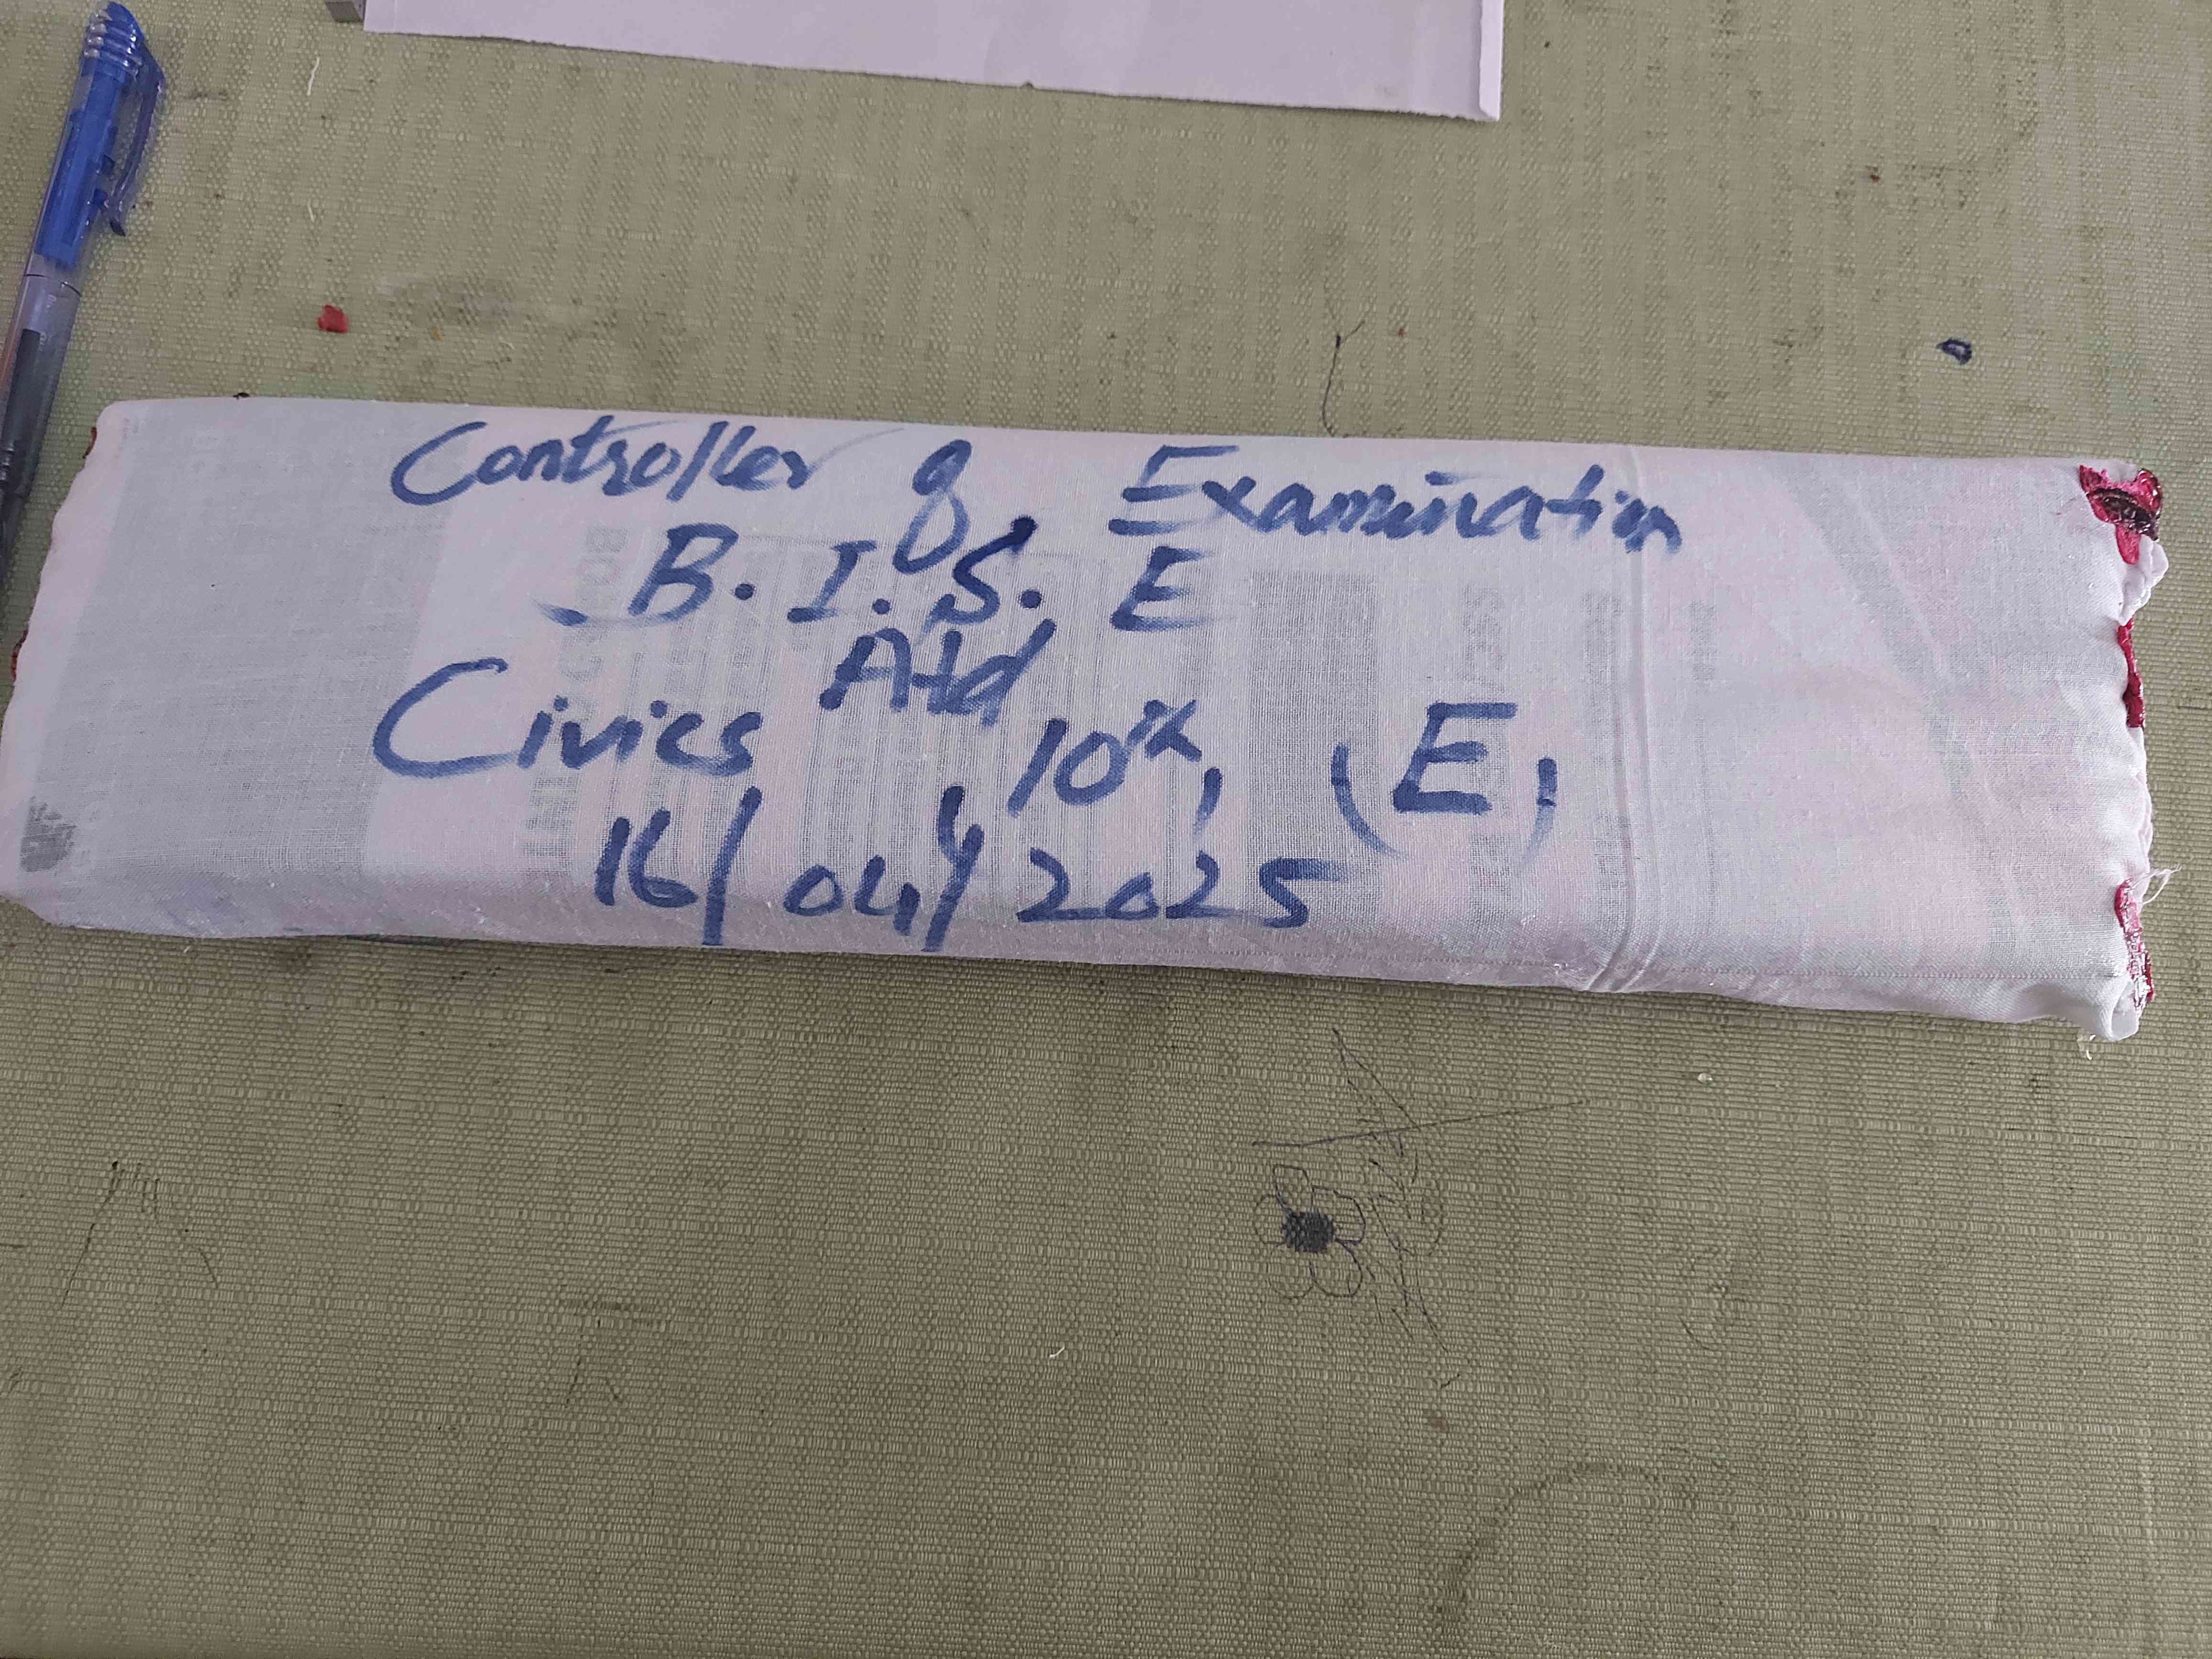 Controller of Examination
B. I. S. E
Atd
Civics 10th, (E)
16/04/2025